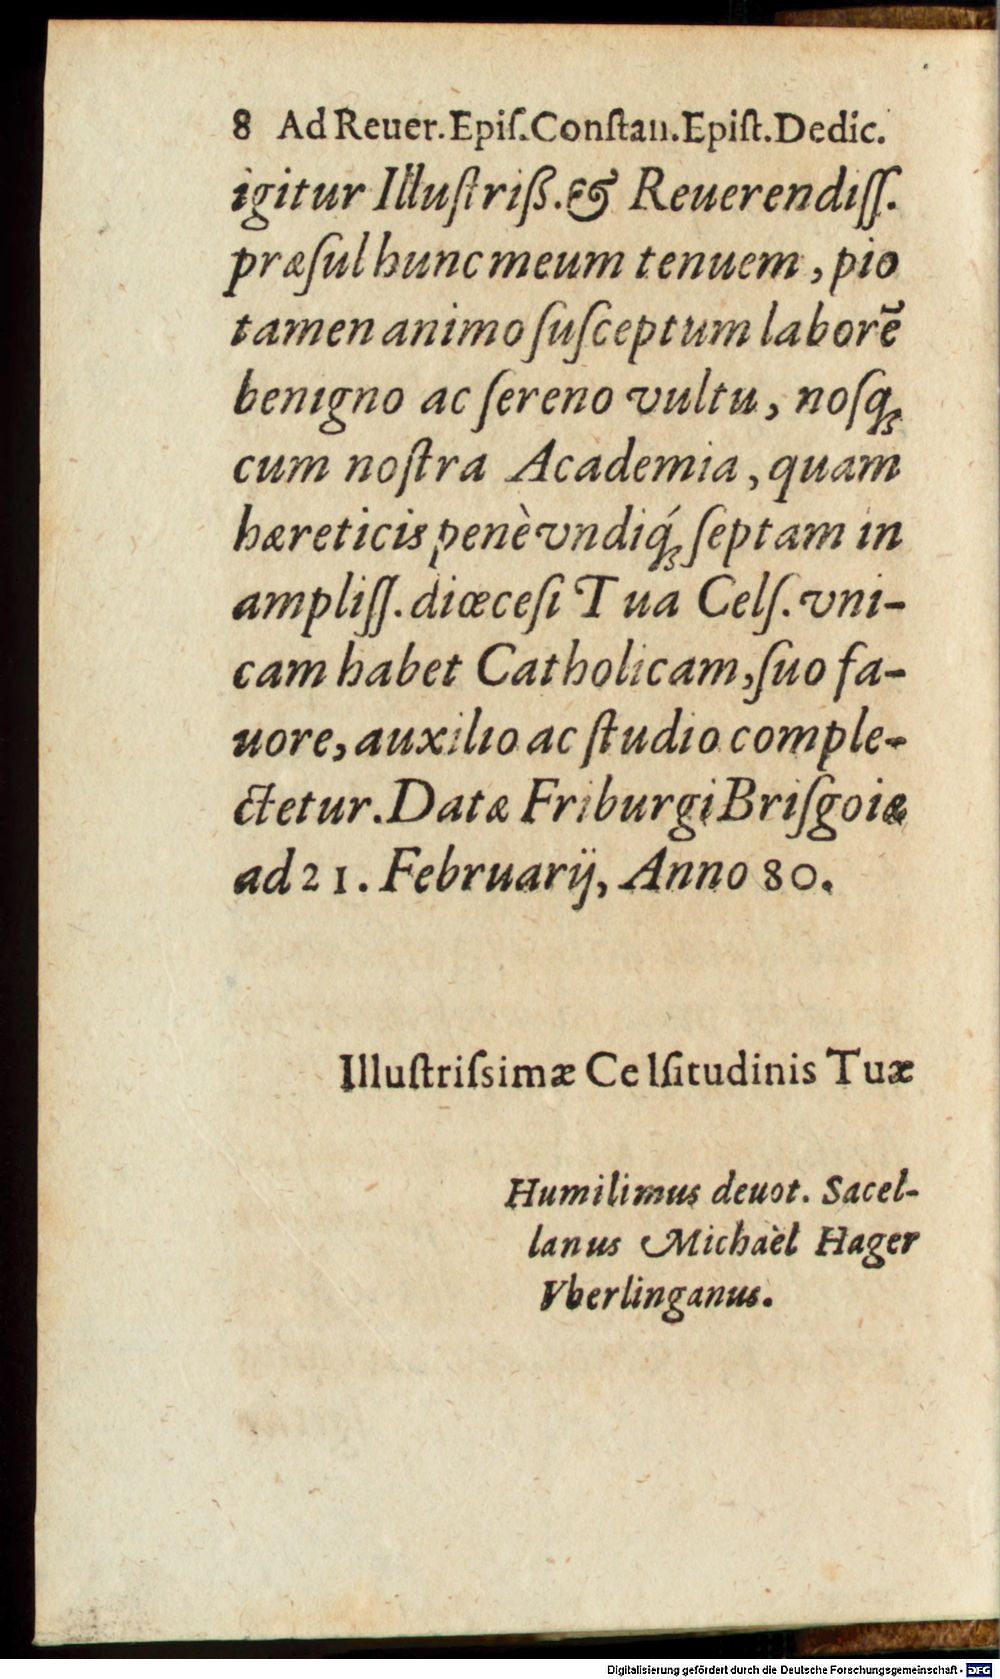 8 Ad Reuer. Epiſ. Conſtan. Epiſt. Dedic.
igitur Illuſtriß. & Reuerendiſſ.
præſul hunc meum tenuem, pio
tamen animo ſuſceptum laborē
benigno ac ſereno vultu, noſq́ꝫ
cum noſtra Academia, quam
hæreticis penè vndiq́ꝫ ſeptam in
ampliſſ. diœceſi Tua Celſ. vni-
cam habet Catholicam, ſuo fa-
uore, auxilio ac ſtudio comple-
ctetur. Datæ Friburgi Briſgoiæ
ad 21. Februarij, Anno 80.
Illuſtriſsimæ Celſitudinis Tuæ
Humilimus deuot. Sacel-
lanus Michaèl Hager
Vberlinganus.
Digitalisierung gefördert durch die Deutsche Forschungsgemeinschaft - DFG